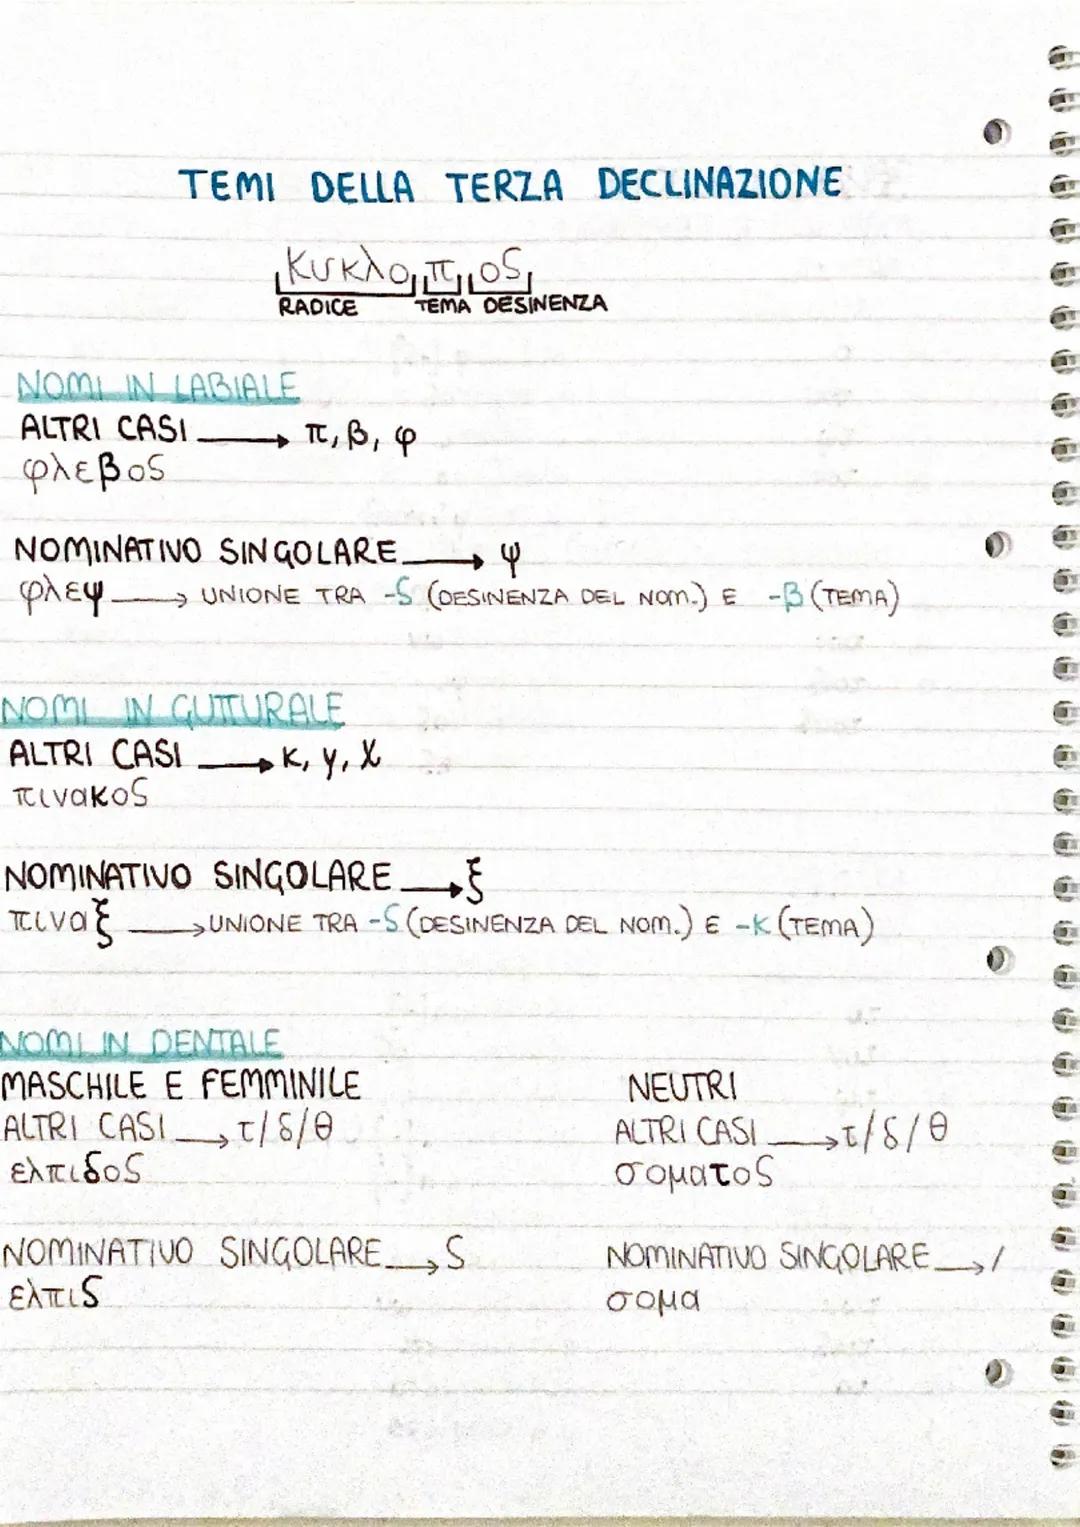 TEMI DELLA TERZA DECLINAZIONE
κυκλοπος
RADICE TEMA DESINENZA
NOMI IN LABIALE
ALTRI CASI → π, β, φ
φλεβος
NOMINATIVO SINGOLARE → ψ
φλεψ → UNIONE TRA -ς (DESINENZA DEL NOM.) E -β (TEMA)
NOMI IN GUTTURALE
ALTRI CASI → κ, γ, χ
πινακος
NOMINATIVO SINGOLARE → ξ
πιναξ → UNIONE TRA -ς (DESINENZA DEL NOM.) E -κ (TEMA)
NOMI IN DENTALE
MASCHILE E FEMMINILE
ALTRI CASI → τ/δ/θ
ελπιδος
NOMINATIVO SINGOLARE → ς
ελπις
NEUTRI
ALTRI CASI → τ/δ/θ
σοματος
NOMINATIVO SINGOLARE → /
σομα